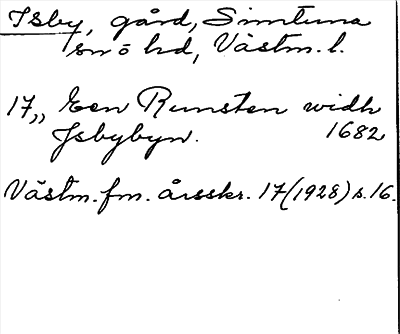 Isby, gård, Simtuna
sn o hd, Västm. l.
17,, Een Runsten widh
Jsbybyn. 1682
Västm. fm. årsskr. 17(1928) s. 16.